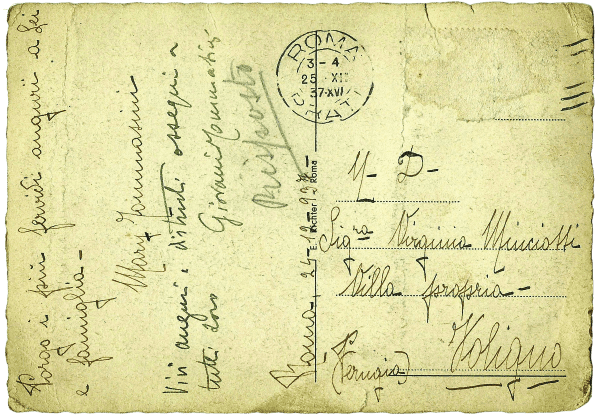 Porgo i più fervidi auguri a Lei
e famiglia -
Mary Tommasini
Vivi auguri e distinti ossequi a
tutti loro
Giovanni Tommasini
Risposto
Roma, 24-12-937
E. Richter - Roma
ROMA
3-4
25 XII
37·XVI
PRATI
N- D-
Sig.ra Virginia Minciotti
Villa propria -
Foligno
(Perugia)